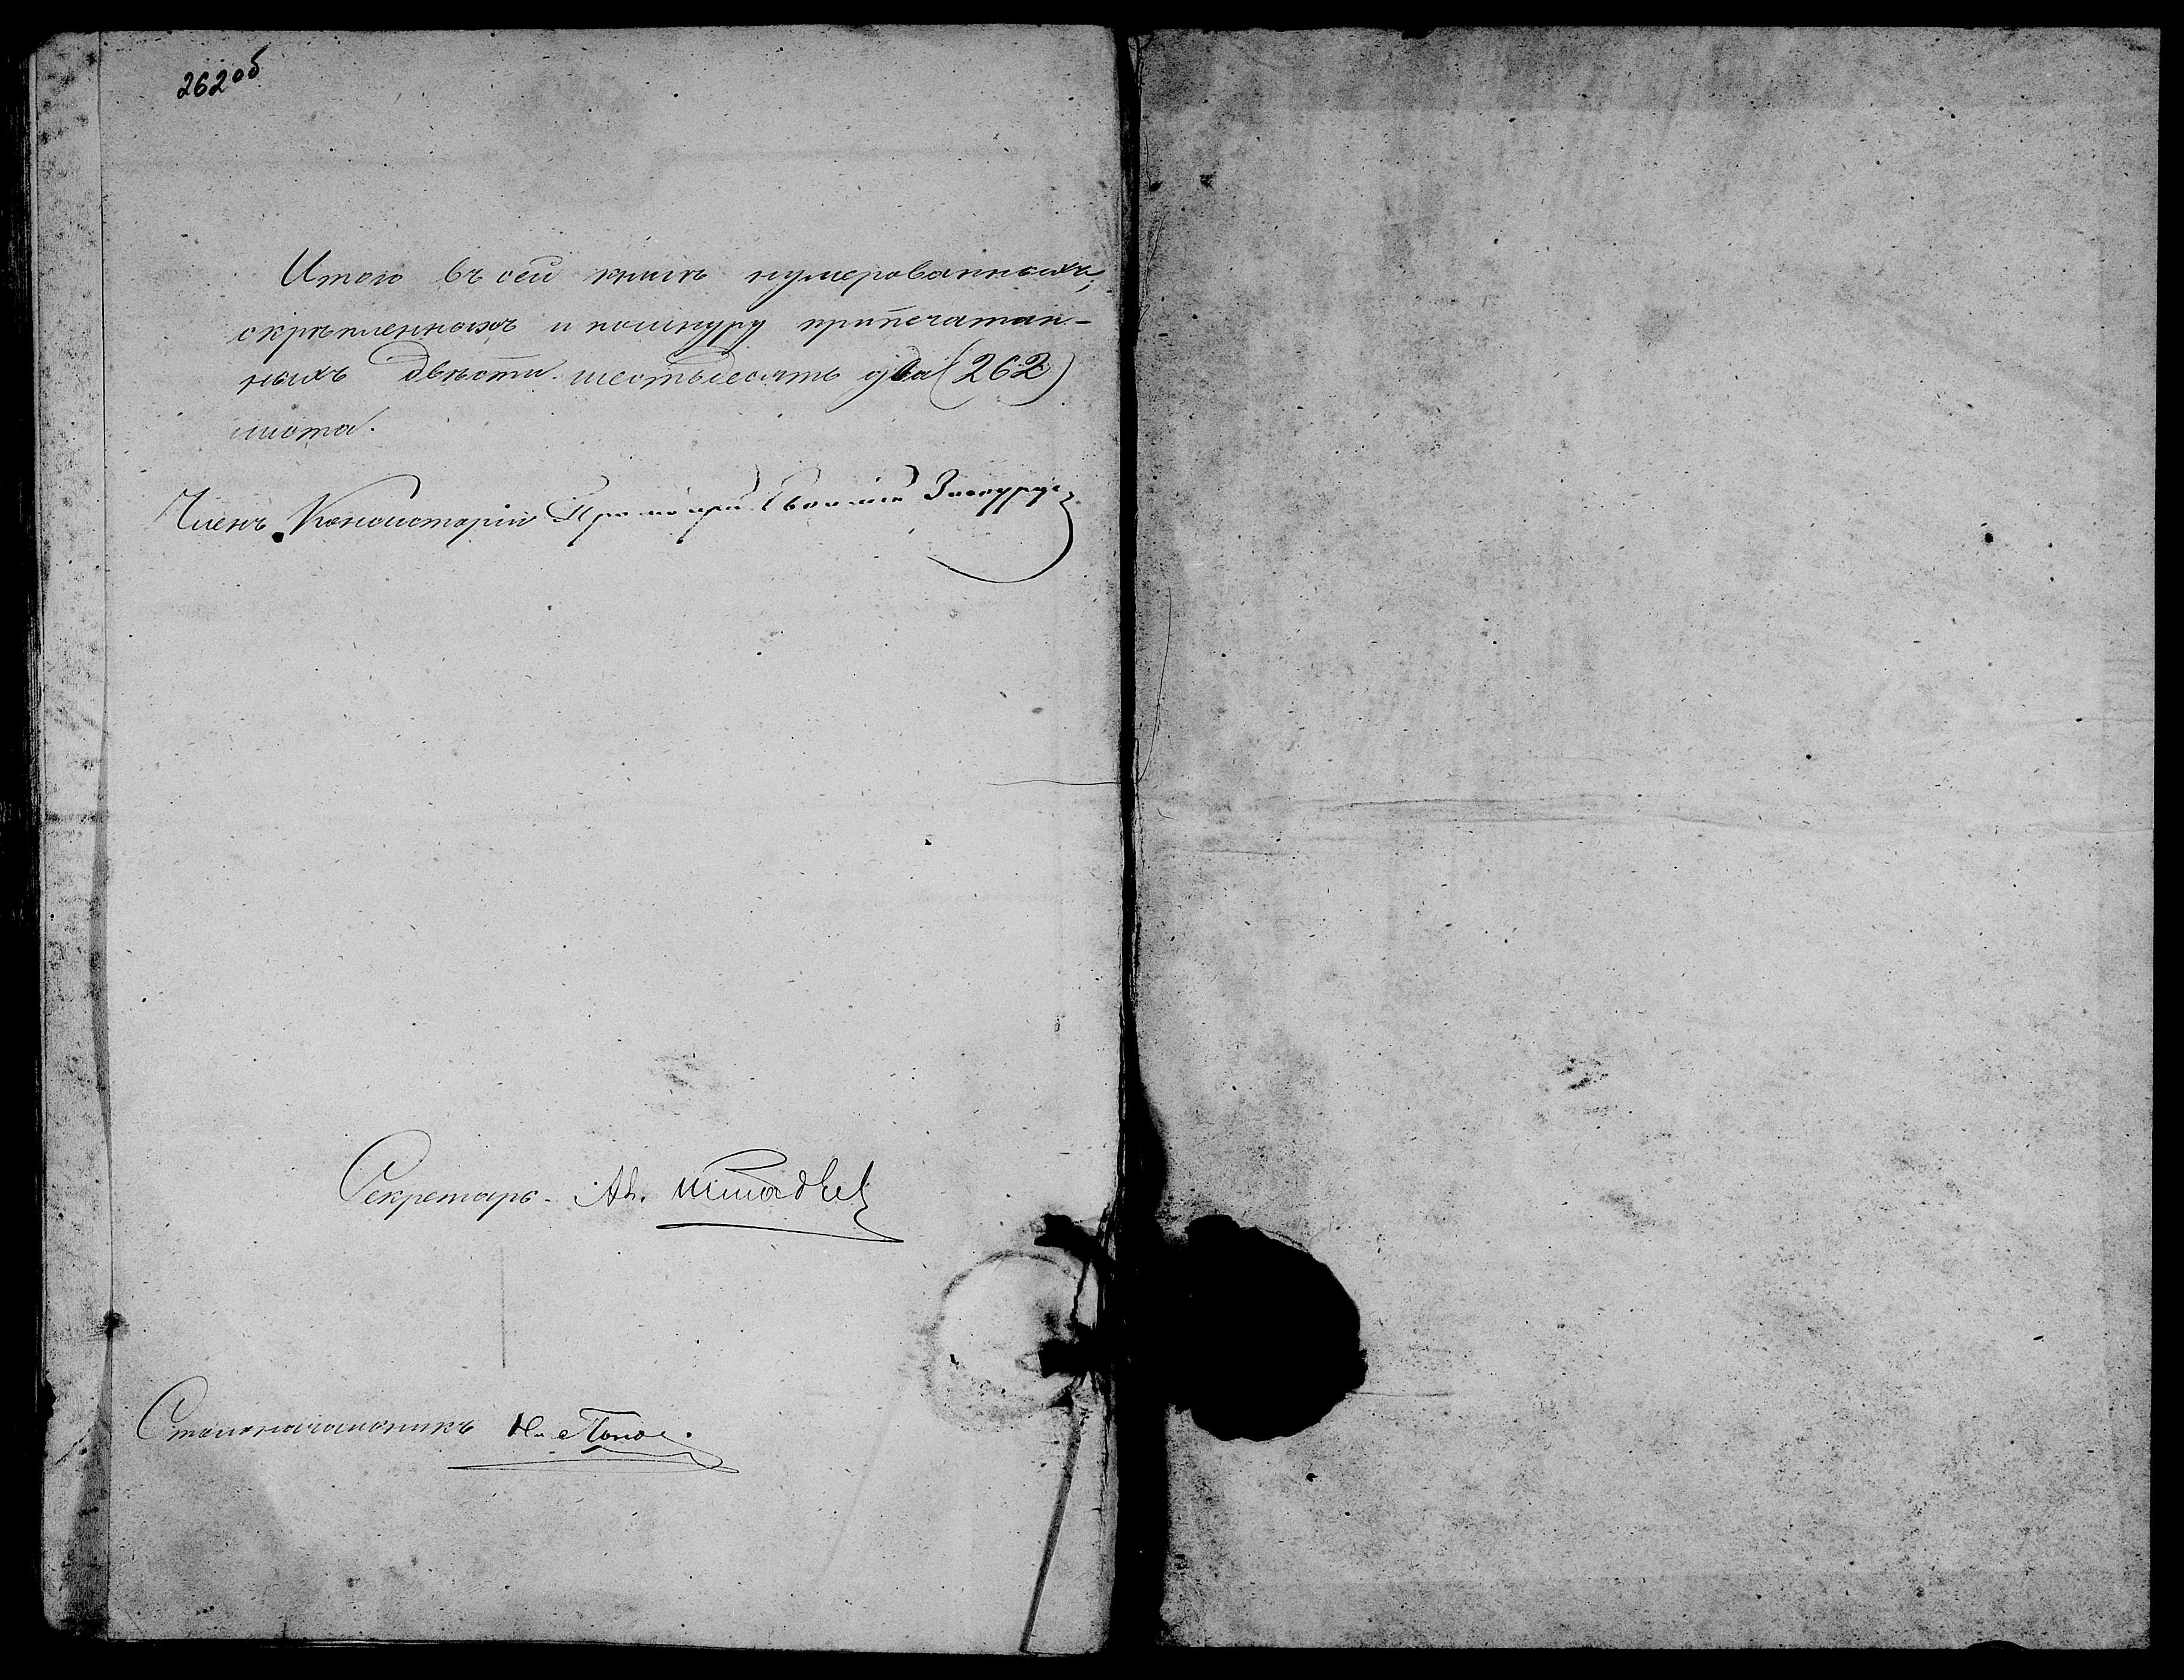 262 об
Итого въ сей книгѣ нумерованныхъ,
скрѣпленныхъ и по шнуру припечатан-
ныхъ двѣсти шестьдесятъ два (262)
листа.
Членъ Консисторіи Протоіерей Евгеній
Секретарь Ал.
Столоначальникъ Н. Попов.